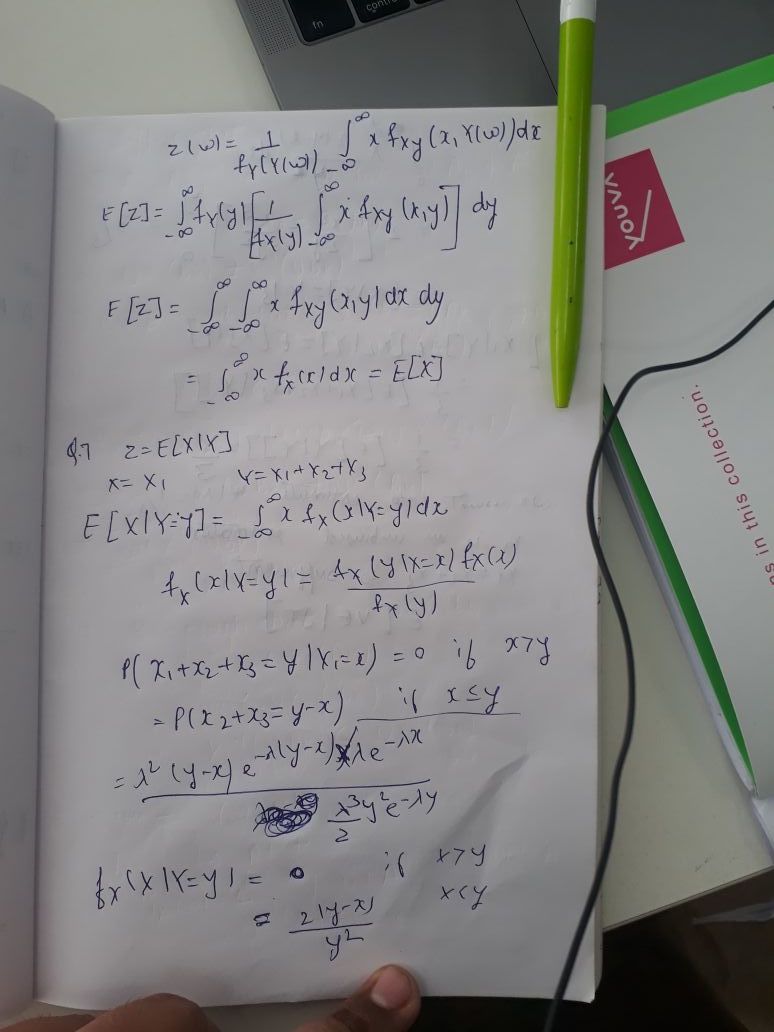 fn
control
z(ω) = 1/f_Y(Y(ω)) ∫_{-∞}^{∞} x f_{XY}(x, Y(ω)) dx
E[z] = ∫_{-∞}^{∞} f_Y(y) [1/f_X(y) ∫_{-∞}^{∞} x f_{XY}(x,y)] dy
E[z] = ∫_{-∞}^{∞} ∫_{-∞}^{∞} x f_{XY}(x,y) dx dy
= ∫_{-∞}^{∞} x f_X(x) dx = E[X]
Q.7 z = E[X|Y]
X = X_1 Y = X_1 + X_2 + X_3
E[X|Y=y] = ∫_{-∞}^{∞} x f_X(x|Y=y) dx
f_X(x|Y=y) = f_X(y|X=x) f_X(x) / f_X(y)
P(X_1+X_2+X_3 = y|X_1=x) = 0 if x>y
= P(X_2+X_3 = y-x) if x≤y
= λ^2 (y-x) e^{-λ(y-x)} λe^{-λx} / λ^3/2 y^2 e^{-λy}
f_X(X|Y=y) = 0 if x>y
= 2(y-x) / y^2 x<y
youva
s in this collection.